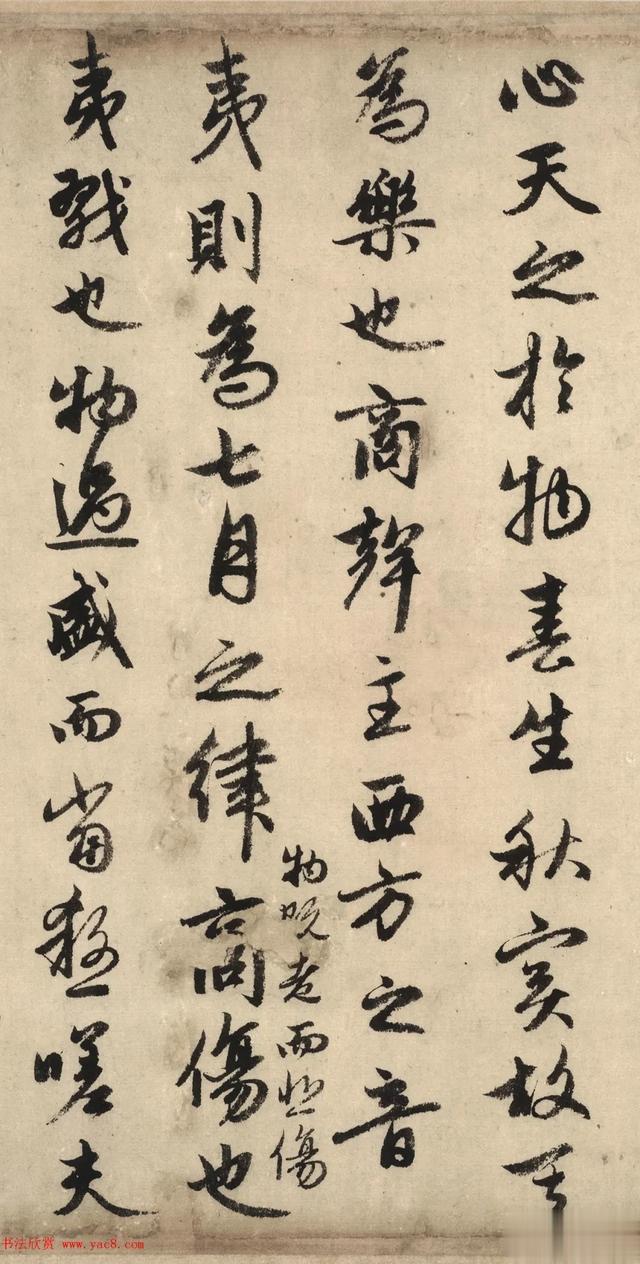 心天之於物春生秋實故其
為樂也商聲主西方之音
夷則為七月之律商傷也
物既老而悲傷
夷戮也物過盛而當殺嗟夫
书法欣赏 www.yac8.com